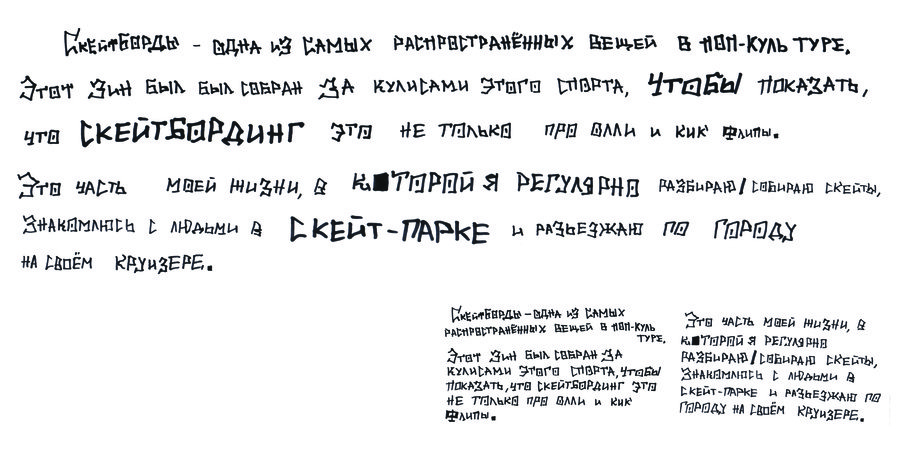 Скейтборды - одна из самых распространённых вещей в поп-культуре.
Этот зин был был собран за кулисами этого спорта, чтобы показать,
что скейтбординг это не только про олли и кик флипы.
Это часть моей жизни, в которой я регулярно разбираю/собираю скейты,
знакомлюсь с людьми в скейт-парке и разъезжаю по городу
на своём круизере.
Скейтборды - одна из самых
распространённых вещей в поп-куль
туре.
Этот зин был собран за
кулисами этого спорта, чтобы
показать, что скейтбординг это
не только про олли и кик
флипы.
Это часть моей жизни, в
которой я регулярно
разбираю/собираю скейты,
знакомлюсь с людьми в
скейт-парке и разъезжаю по
городу на своём круизере.